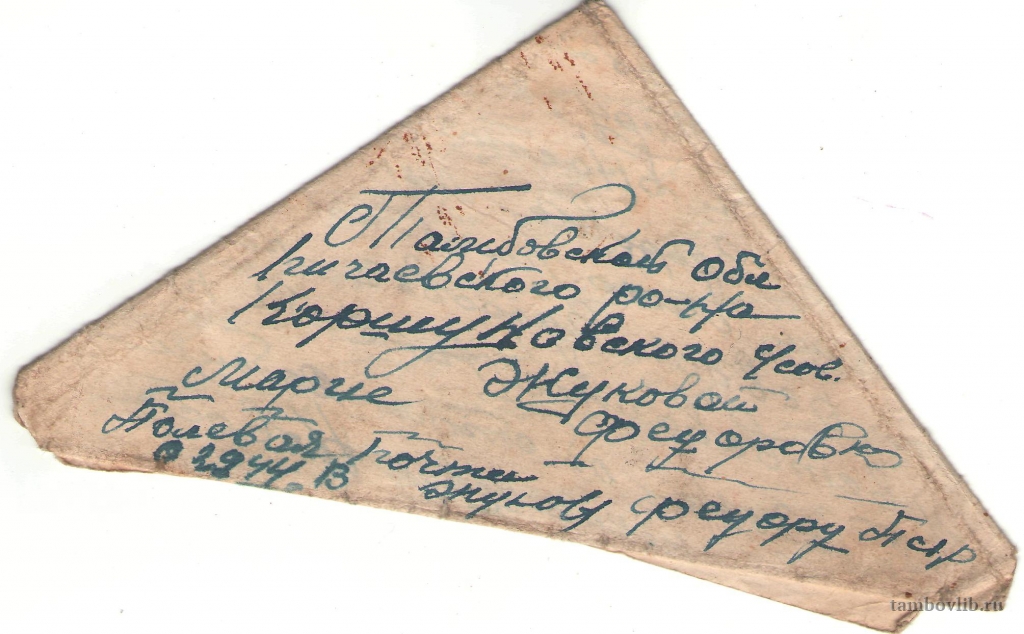 Тамбовской обл
Кичаевского ро-на
Коршуновского
Марие Жуковой
Федоровне
Полевая Почта
02944 В
Жукову Федору
tambovlib.ru